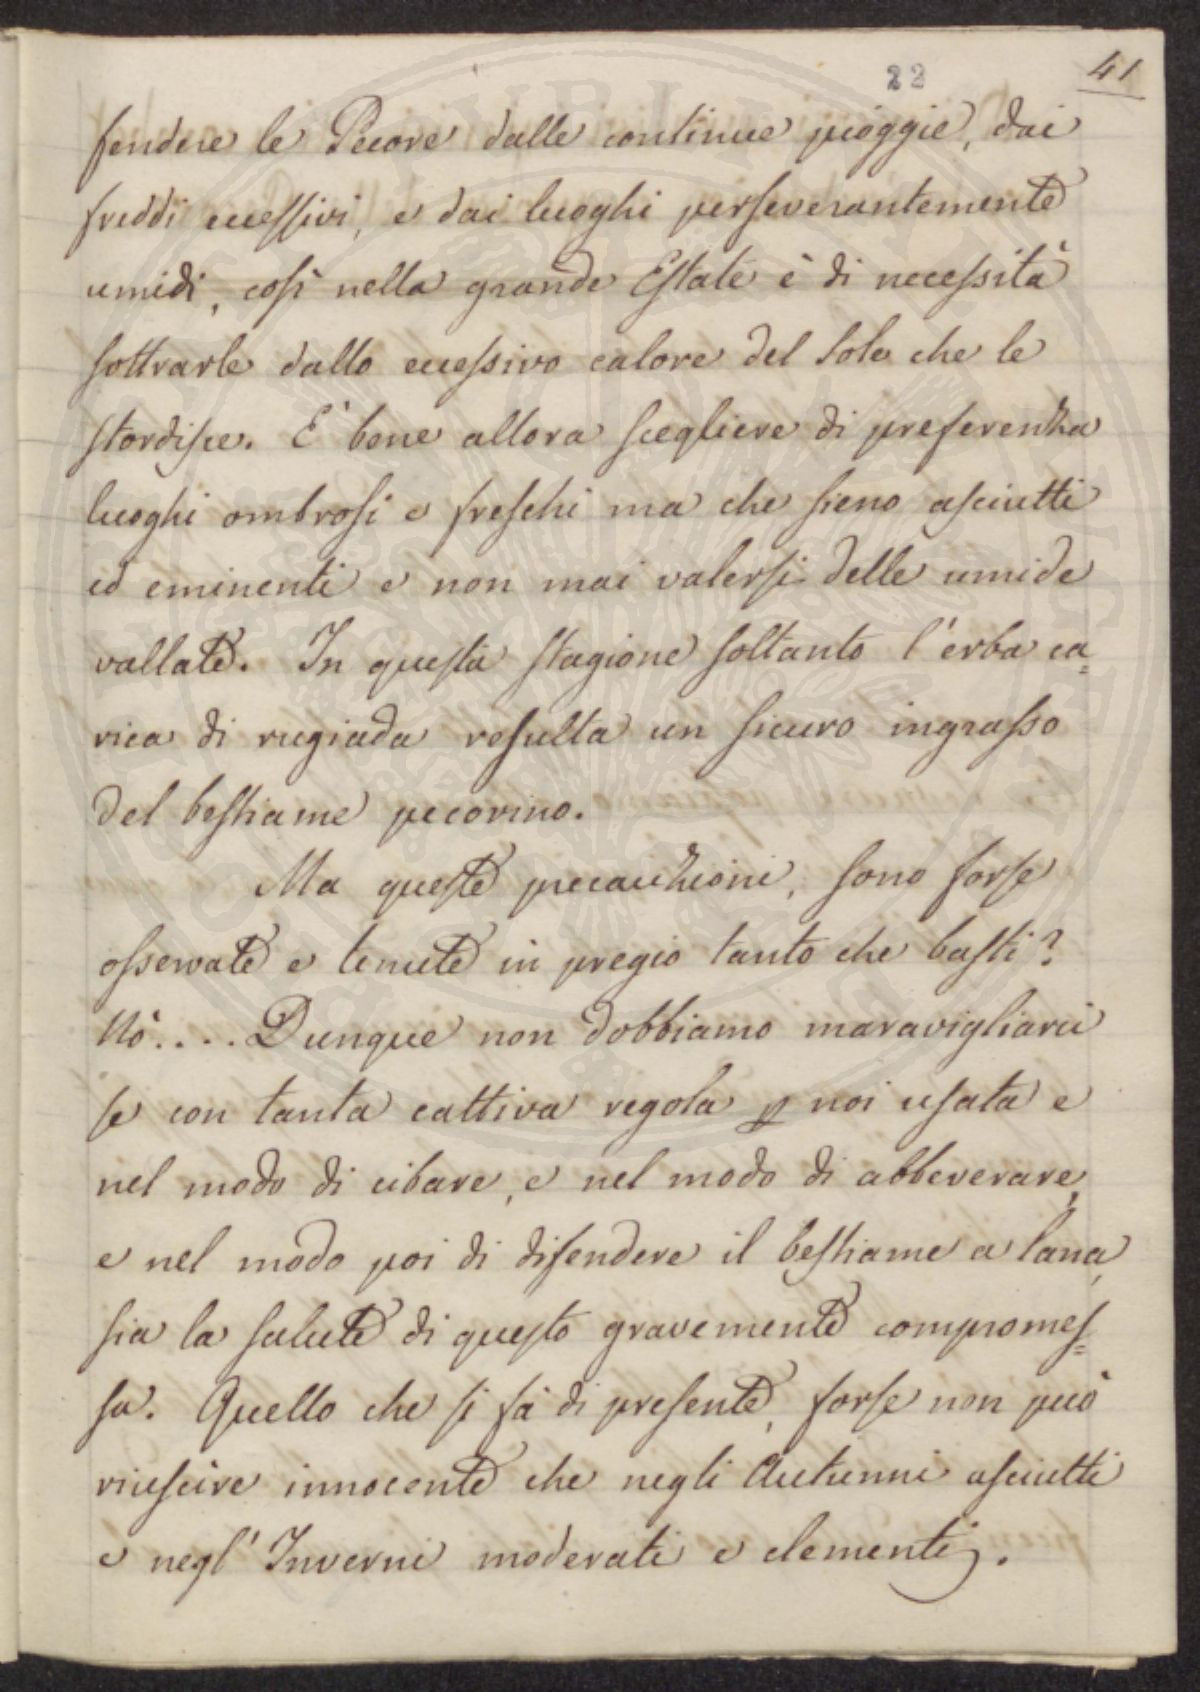 22
41
fendere le Pecore dalle continue pioggie, dai
freddi eccessivi, e dai luoghi perseverantemente
umidi, così nella grande Estate è di necessità
sottrarle dallo eccessivo calore del Sole che le
stordisce. E' bene allora scegliere di preferenza
luoghi ombrosi e freschi ma che sieno asciutti
ed eminenti e non mai valersi delle umide
vallate. In questa stagione soltanto l'erba ca=
rica di rugiada resulta un sicuro ingrasso
del bestiame pecorino.
Ma queste precauzioni, sono forse
osservate e tenute in pregio tanto che basti?
Nò.... Dunque non dobbiamo maravigliarci
se con tanta cattiva regola p noi usata e
nel modo di cibare, e nel modo di abbeverare,
e nel modo poi di difendere il bestiame a lana,
sia la salute di questo gravemente compromes=
sa. Quello che si fà di presente, forse non può
riuscire innocente che negli Autunni asciutti
e negl'Inverni moderati e clementi.